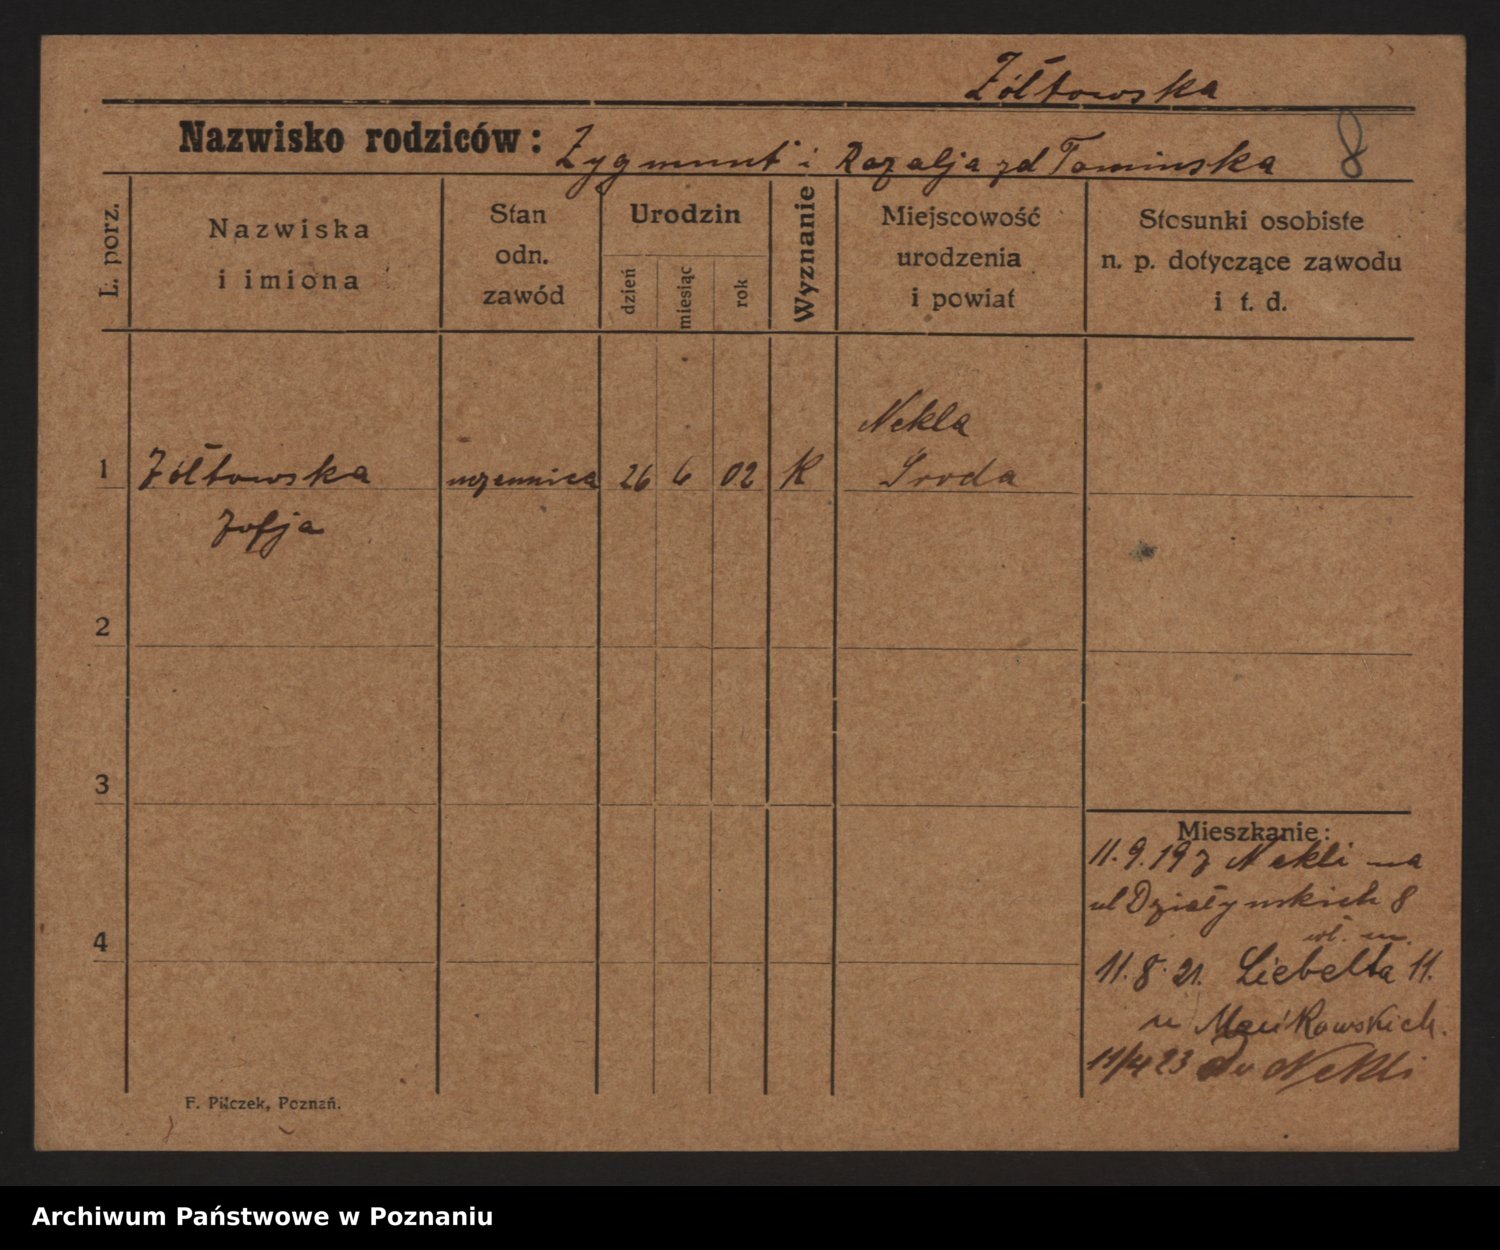 Żółtowska
Nazwisko rodziców: Zygmunt i Rozalja zd Tominska 8
L. porz.
Nazwiska
i imiona
Stan
odn.
zawód
Urodzin
dzień
miesiąc
rok
Wyznanie
Miejscowość
urodzenia
i powiat
Stosunki osobiste
n. p. dotyczące zawodu
i t. d.
Nekla
1 Żółtowska uczennica 26 6 02 K Środa
Zofja
2
3
4
Mieszkanie:
11.9.19 z Nekli na
ul Działynskich 8
wł. m.
11.8.21. Liebelta 11.
u
23 do Nekli
F. Pilczek, Poznań.
Archiwum Państwowe w Poznaniu